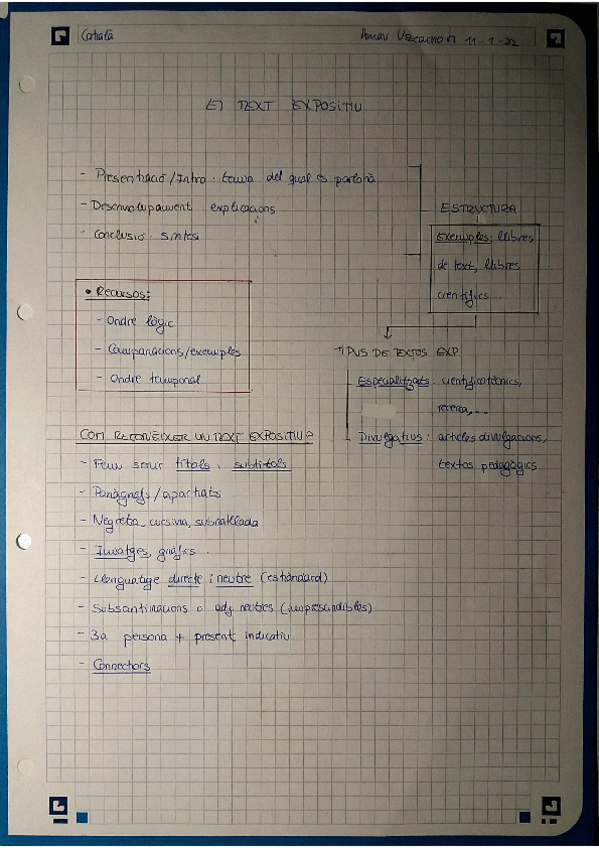 Català
11-1-22
El TEXT EXPOSITIU
- Presentació/Intro: tema del qual es parlarà
- Desenvolupament: explicacions
- Conclusió: síntesi
ESTRUCTURA
Exemples: llibres
de text, llibres
científics...
• Recursos:
- Ordre lògic
- Comparacions/exemples
- Ordre temporal
TIPUS DE TEXTOS EXP.
- Especialitzats: cientificotècnics,
recerca,...
- Divulgatius: articles divulgacions,
textos pedagògics
COM RECONÈIXER UN TEXT EXPOSITIU?
- Feu servir títols i subtítols
- Paràgrafs/apartats
- Negreta, cursiva, subratllada
- Imatges, gràfics...
- Llenguatge directe i neutre (estàndard)
- Substantivacions o adj neutres (imprescindibles)
- 3a persona + present indicatiu
- Connectors